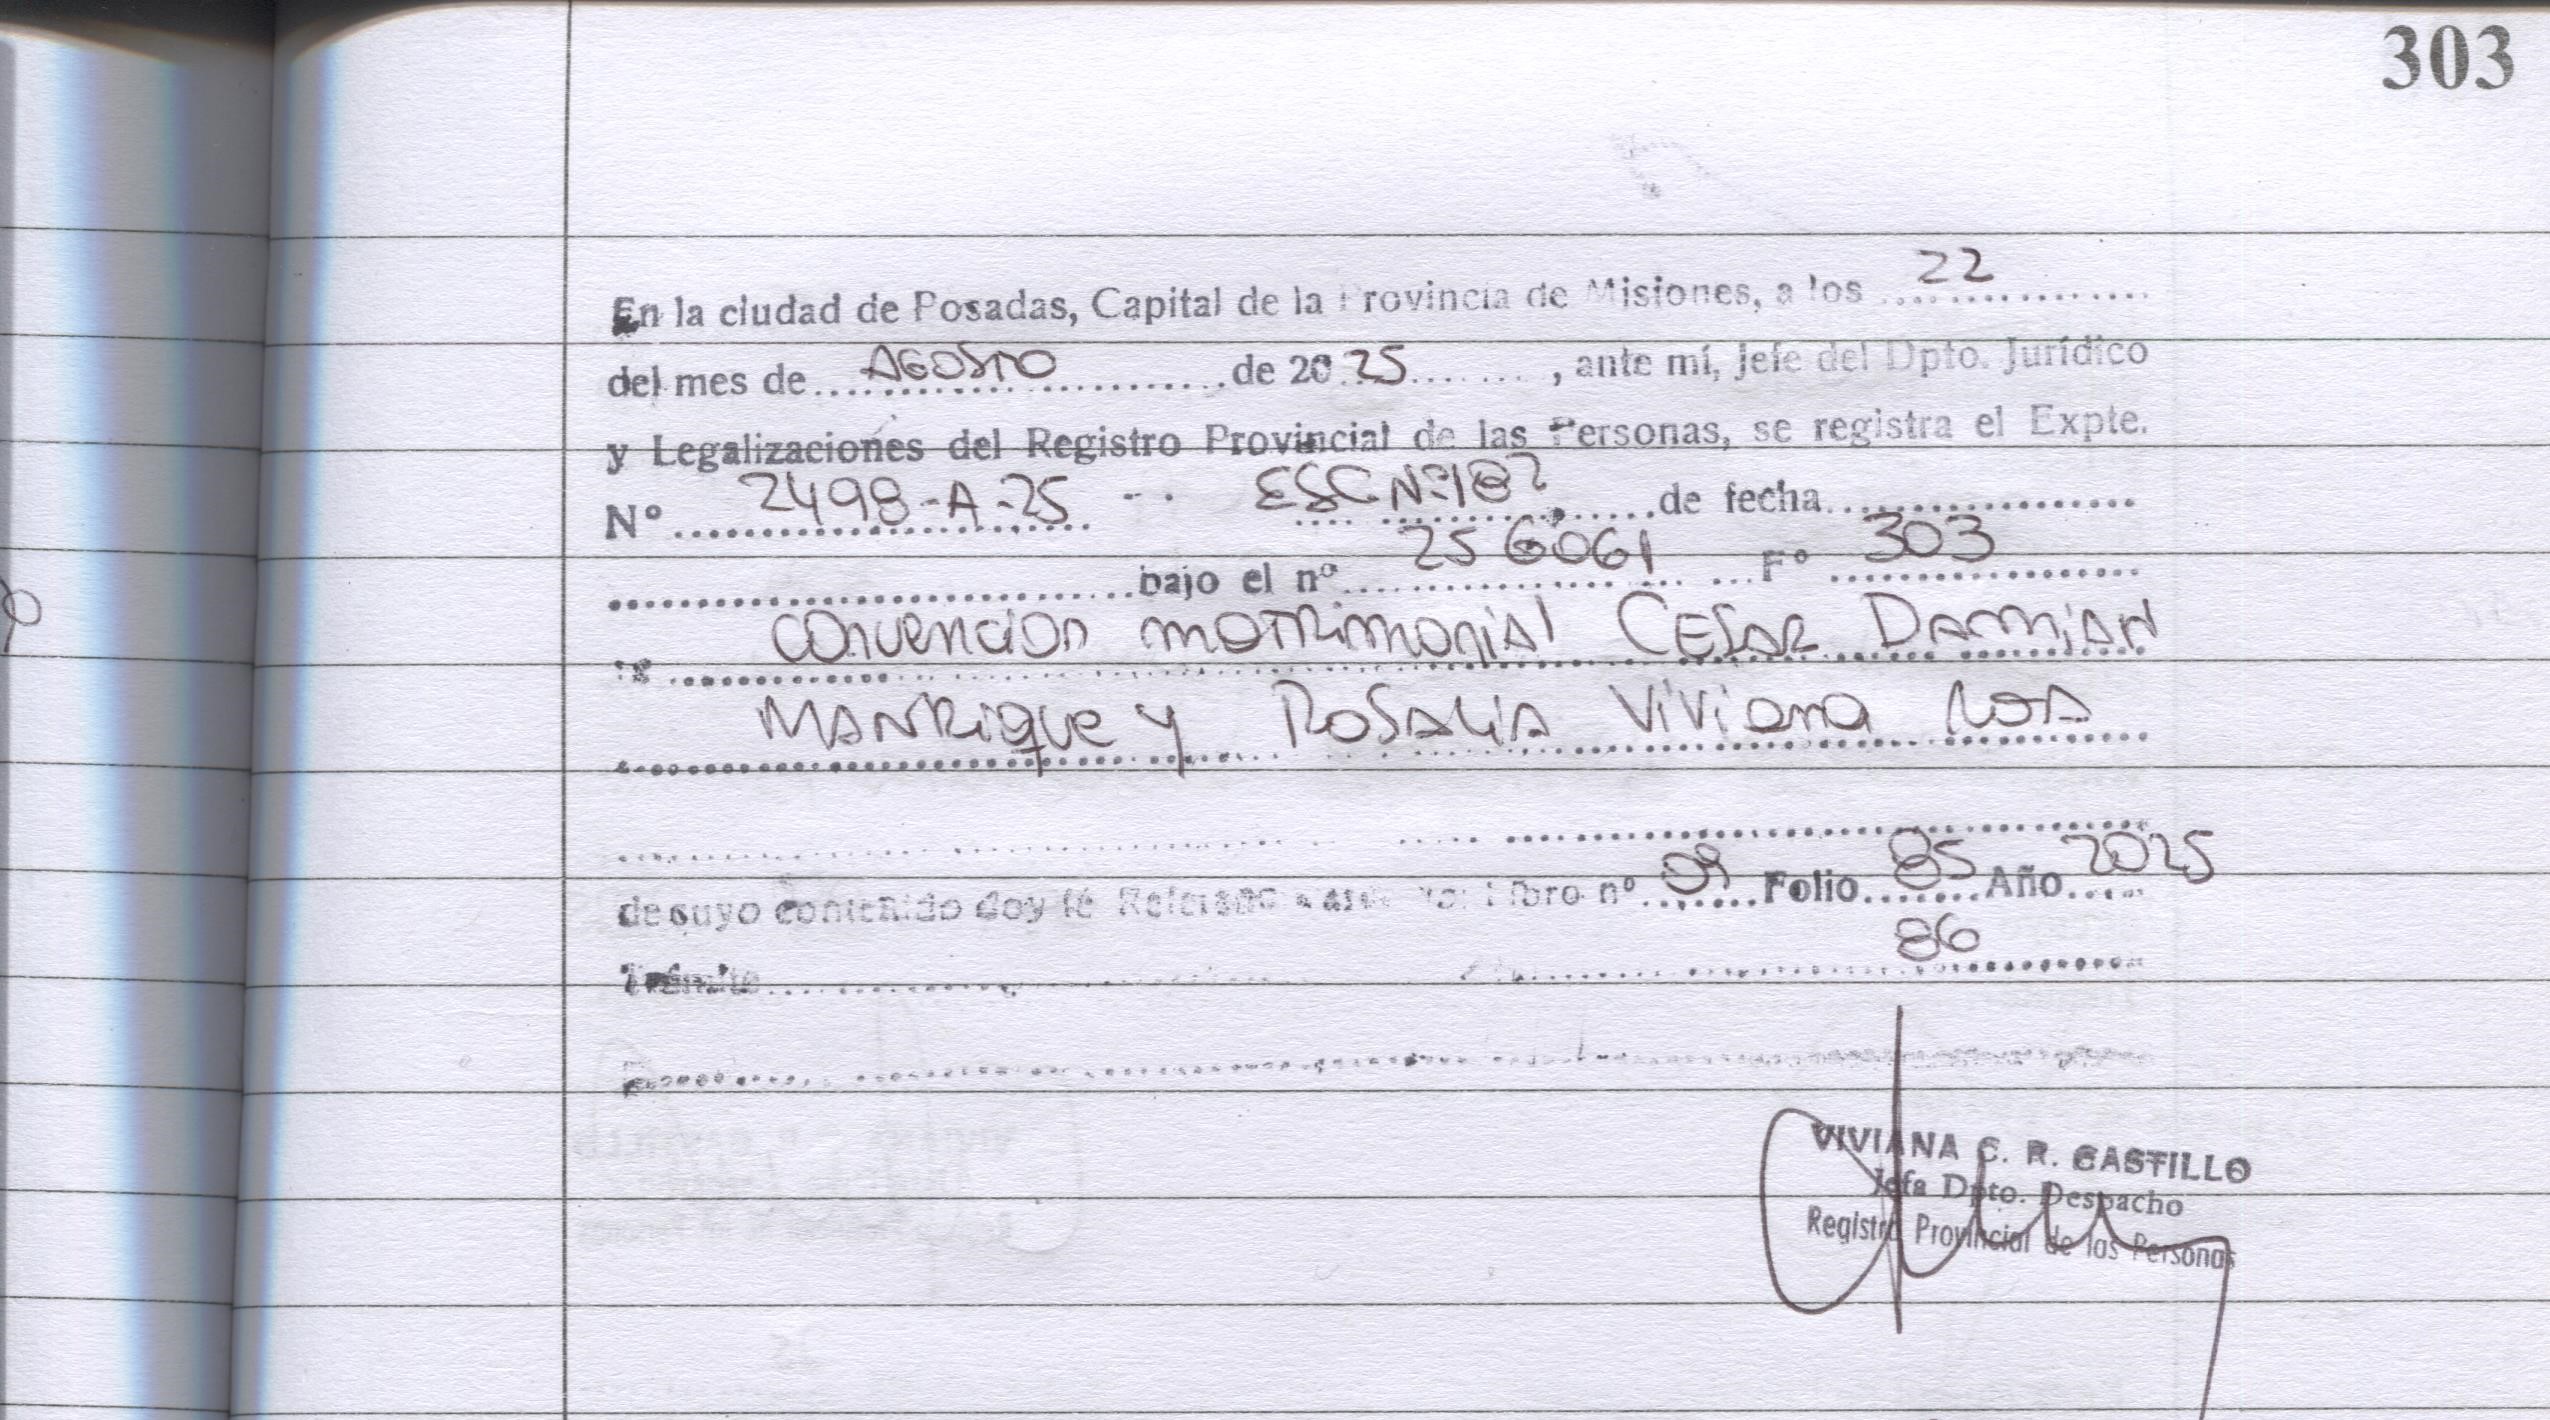 303
En la ciudad de Posadas, Capital de la Provincia de Misiones, a los 22
del mes de AGOSTO de 2025, ante mí, Jefe del Dpto. Jurídico
y Legalizaciones del Registro Provincial de las Personas, se registra el Expte.
Nº 2498-A-25 -- ESC Nº 187 de fecha
bajo el nº 256061 Fº 303
convencion matrimonial CESAR DAMIAN
MANRique y ROSALIA Viviana
de cuyo contenido doy fé Libro nº 09 Folio 85 Año 2025
86
Trámite
VIVIANA C. R. CASTILLO
Jefa Dpto. Despacho
Registro Provincial de las Personas